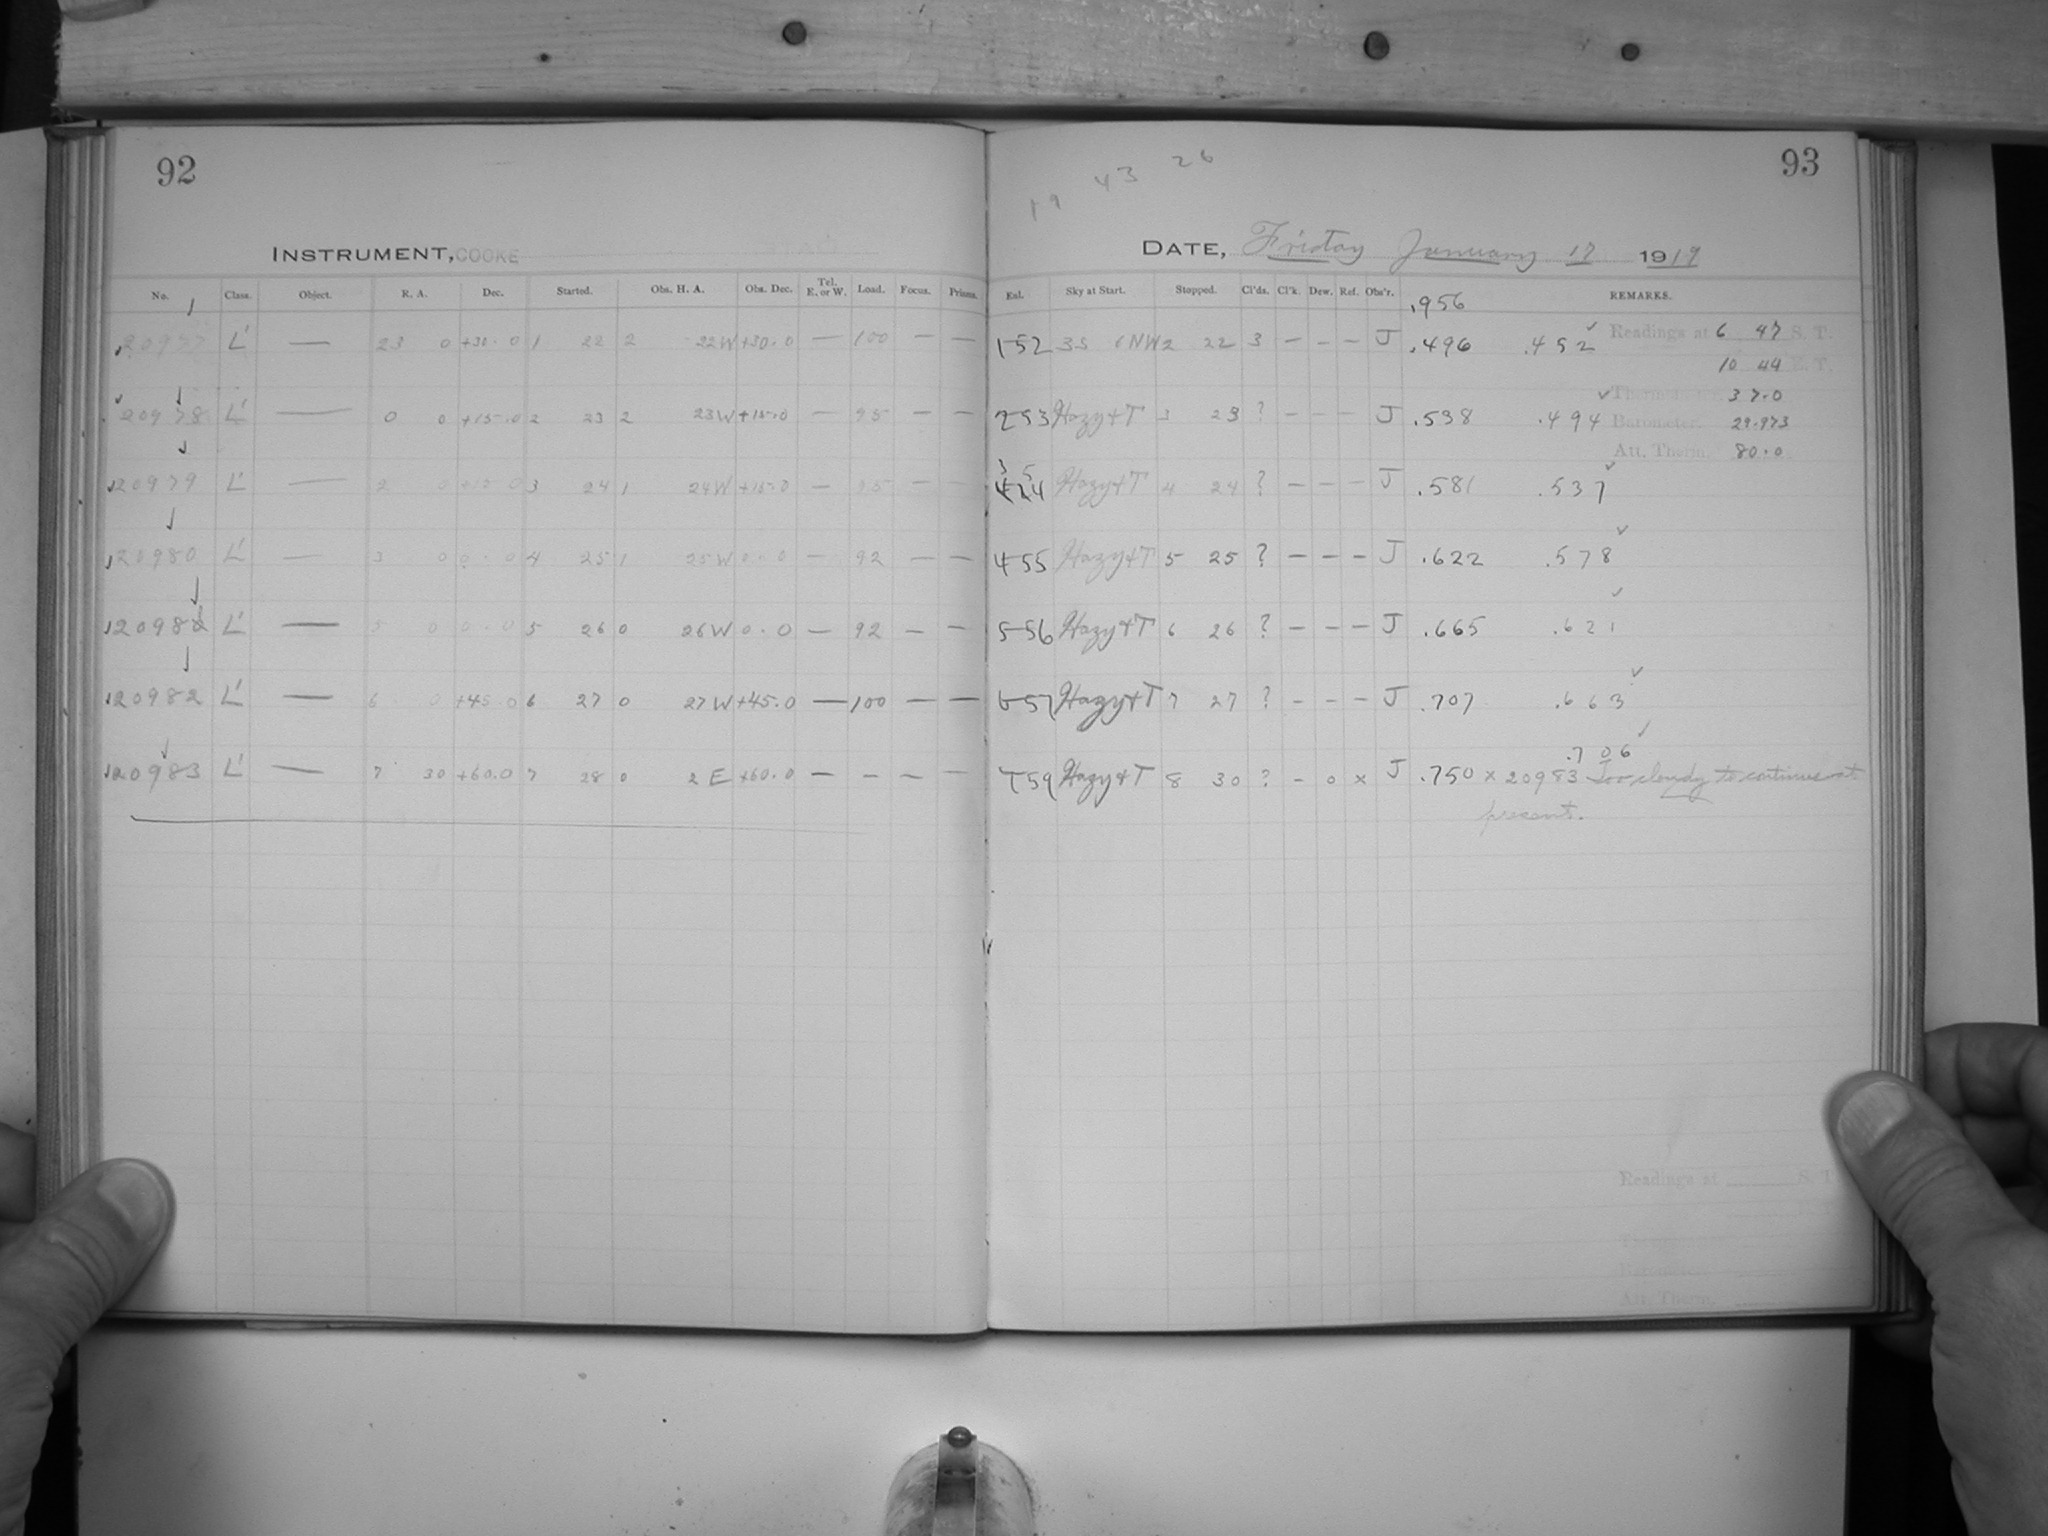 92
INSTRUMENT, COOKE
No. Class. Object. R. A. Dec. Started. Obs. H. A. Obs. Dec. Tel. E. or W. Load. Focus. Prisms.
20977 L' — 23 0 +30.0 1 22 2 22W +30.0 — 100 — —
20978 L' — 0 0 +15.0 2 23 2 23W +15.0 — 95 — —
20979 L' — 2 0 +15.0 3 24 1 24W +15.0 — 95 — —
20980 L' — 3 0 0.0 4 25 1 25W 0.0 — 92 — —
2098 L' — 5 0 0.0 5 26 0 26W 0.0 — 92 — —
20982 L' — 6 0 +45.0 6 27 0 27W +45.0 — 100 — —
20983 L' — 7 30 +60.0 7 28 0 2 E +60.0 — — — —
93
19 43 26
DATE, Friday January 17 1919
Exl. Sky at Start. Stopped. Cl'ds. Cl'k. Dew. Ref. Obs'r. REMARKS.
.956
1 52 3S 6NW 2 22 3 — — — J .496 .452 ✓ Readings at 6 47 S. T.
10 44 E. T.
2 53 Hazy+T 3 23 ? — — — J .538 .494 ✓ Thermometer 37.0
Barometer. 29.973
Att. Therm. 80.0
3 54 Hazy+T 4 24 ? — — — J .581 .537 ✓
4 55 Hazy+T 5 25 ? — — — J .622 .578 ✓
5 56 Hazy+T 6 26 ? — — — J .665 .621 ✓
6 57 Hazy+T 7 27 ? — — — J .707 .663 ✓
.706 ✓
7 59 Hazy+T 8 30 ? — 0 x J .750 x 20983 Too cloudy to continue at
present.
Readings at S. T.
Barometer.
Att. Therm.